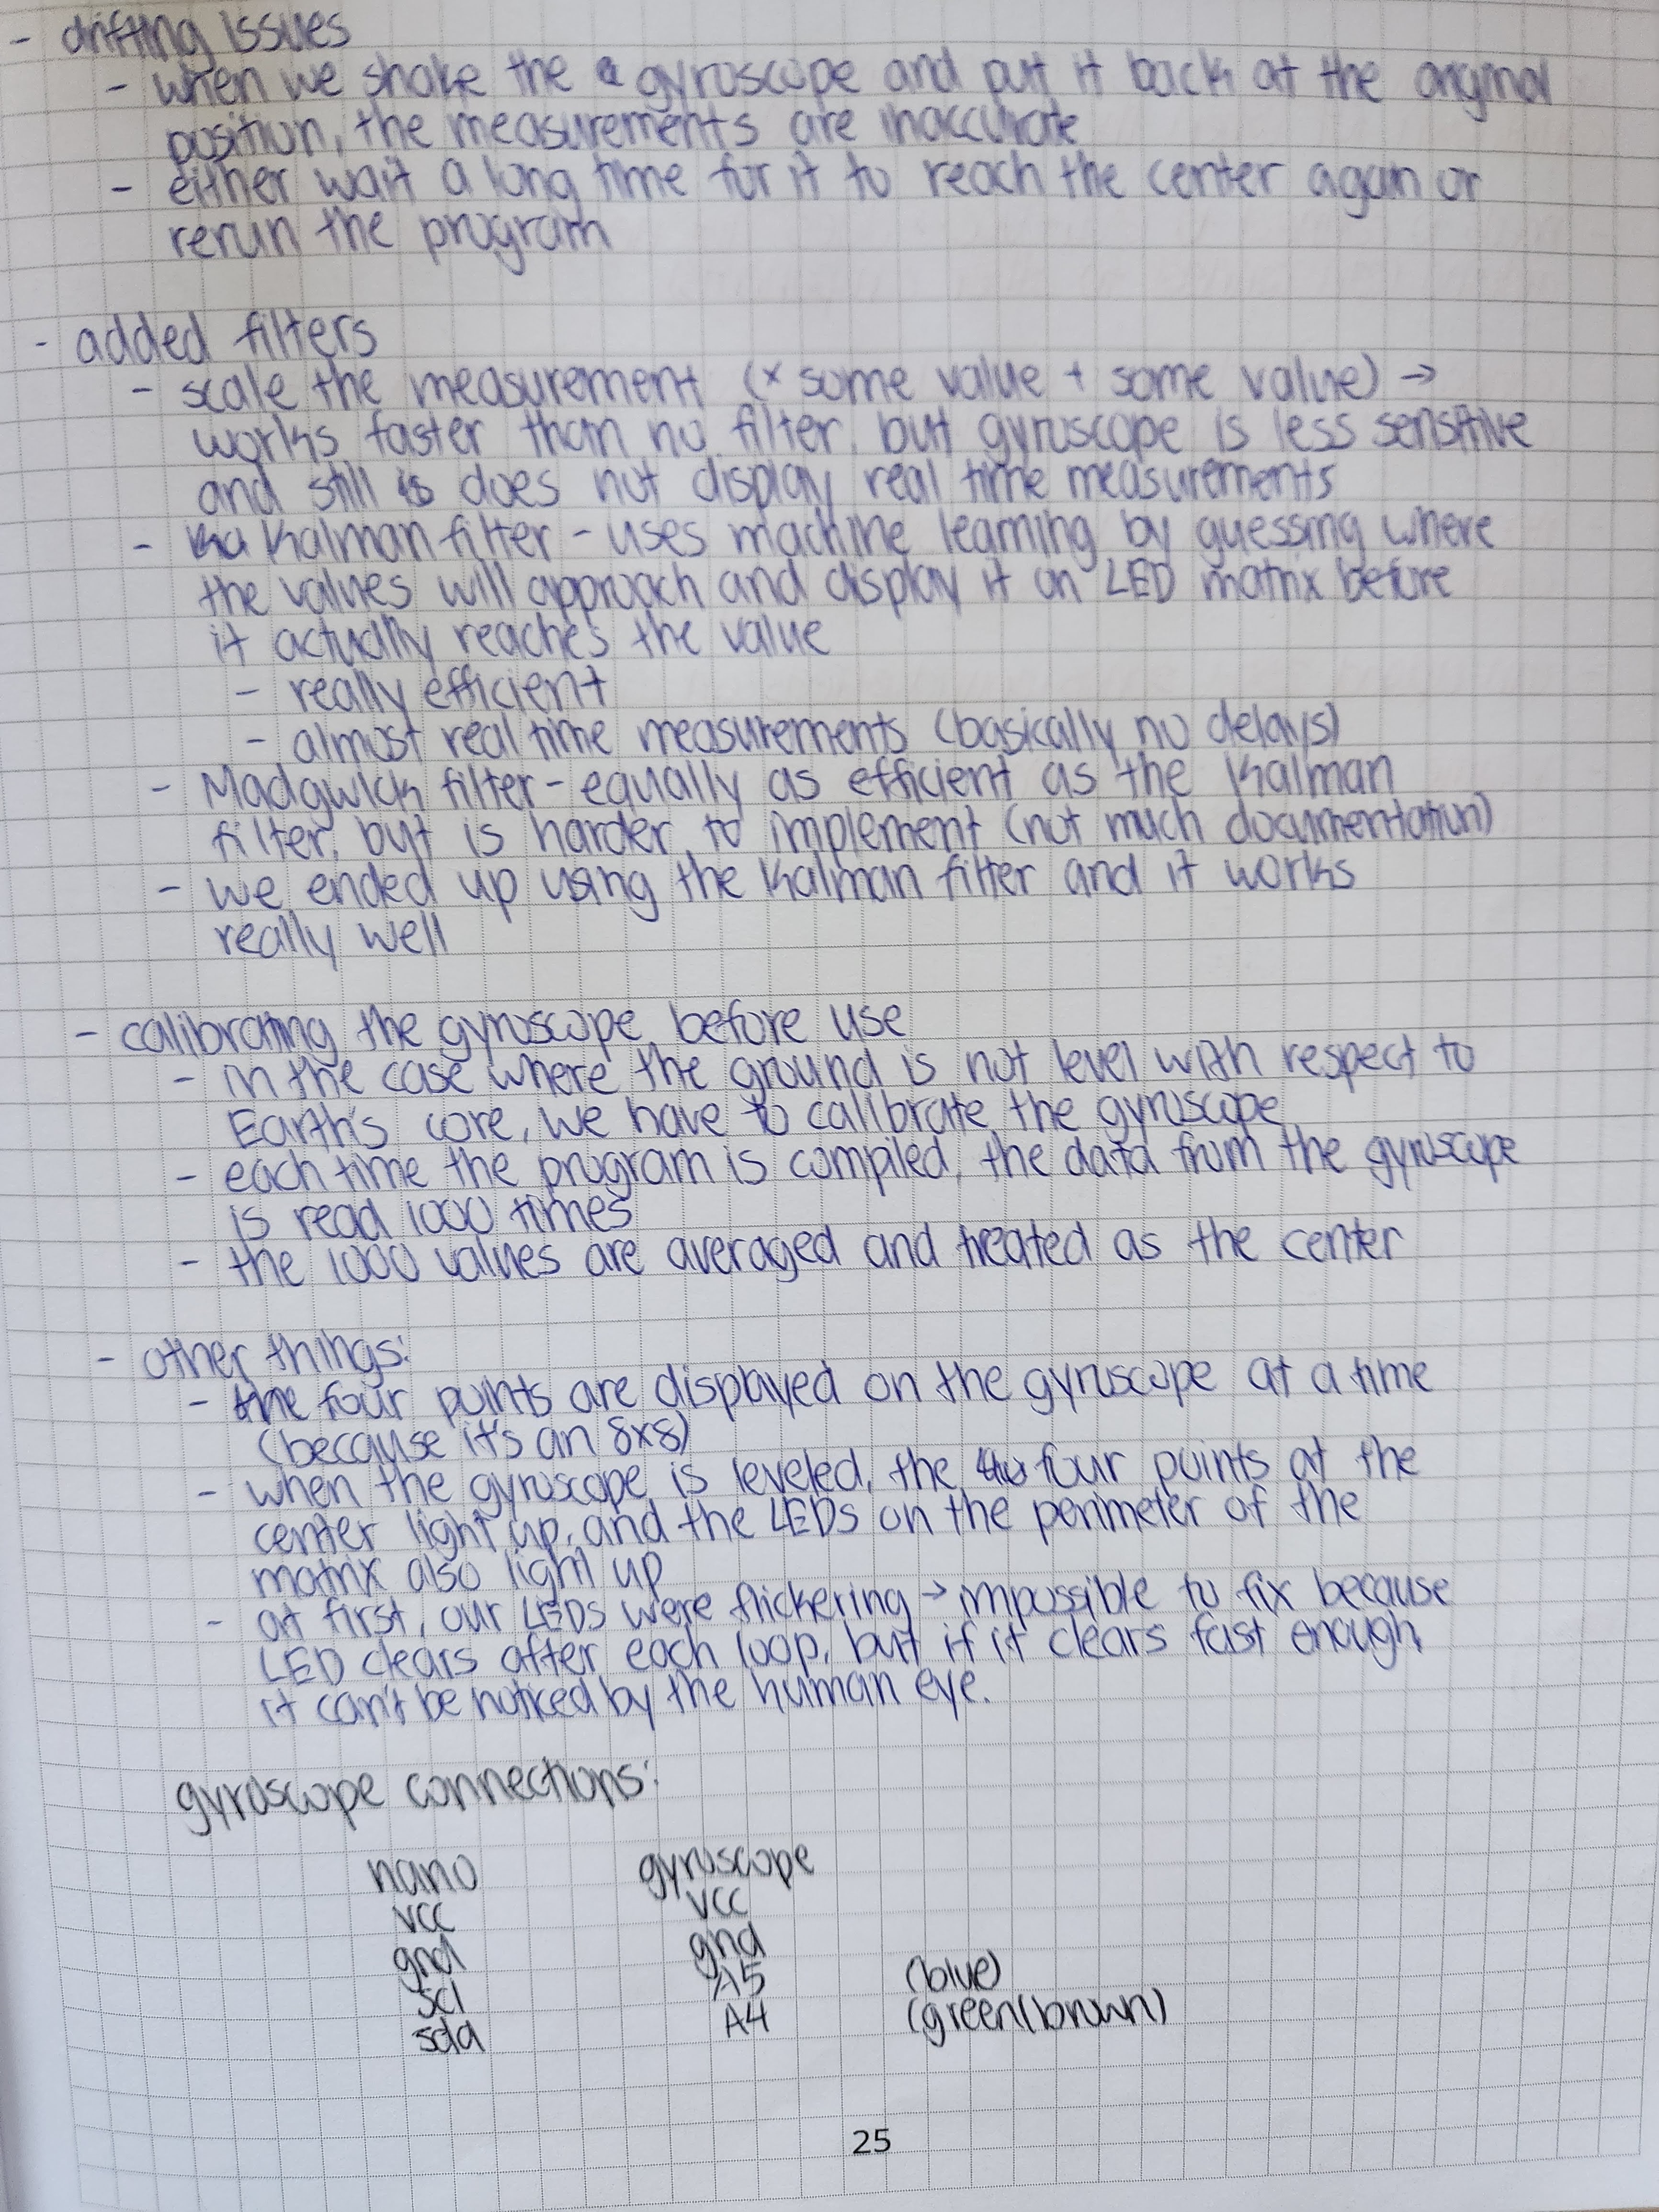 - drifting issues
- when we shake the gyroscope and put it back at the original
position, the measurements are inaccurate
- either wait a long time for it to reach the center again or
rerun the program
- added filters
- scale the measurement (x some value + some value) →
works faster than no filter, but gyroscope is less sensitive
and still is does not display real time measurements
- Ka Kalman filter - uses machine learning by guessing where
the values will approach and display it on LED matrix before
it actually reaches the value
- really efficient
- almost real time measurements (basically no delays)
- Madgwick filter - equally as efficient as the Kalman
filter, but is harder to implement (not much documentation)
- we ended up using the Kalman filter and it works
really well
- calibrating the gyroscope before use
- in the case where the ground is not level with respect to
Earth's core, we have to calibrate the gyroscope
- each time the program is compiled, the data from the gyroscope
is read 1000 times
- the 1000 values are averaged and treated as the center
- other things:
- the four points are displayed on the gyroscope at a time
(because it's an 8x8)
- when the gyroscope is leveled, the four points at the
center light up, and the LEDs on the perimeter of the
matrix also light up
- at first, our LEDs were flickering → impossible to fix because
LED clears after each loop, but if it clears fast enough,
it can't be noticed by the human eye.
gyroscope connections:
nano gyroscope
vcc vcc
gnd gnd
scl A5 (blue)
sda A4 (green(brown)
25